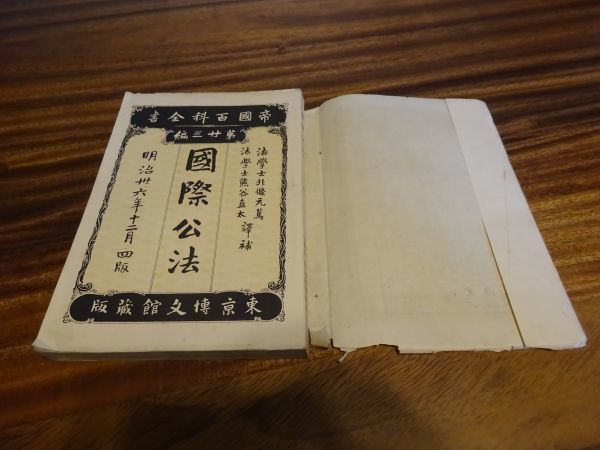 帝國百科全書
第廿三編
法學士北條元篤
法學士熊谷直太 譯補
國際公法
明治卅六年十二月 四版
東京博文館藏版